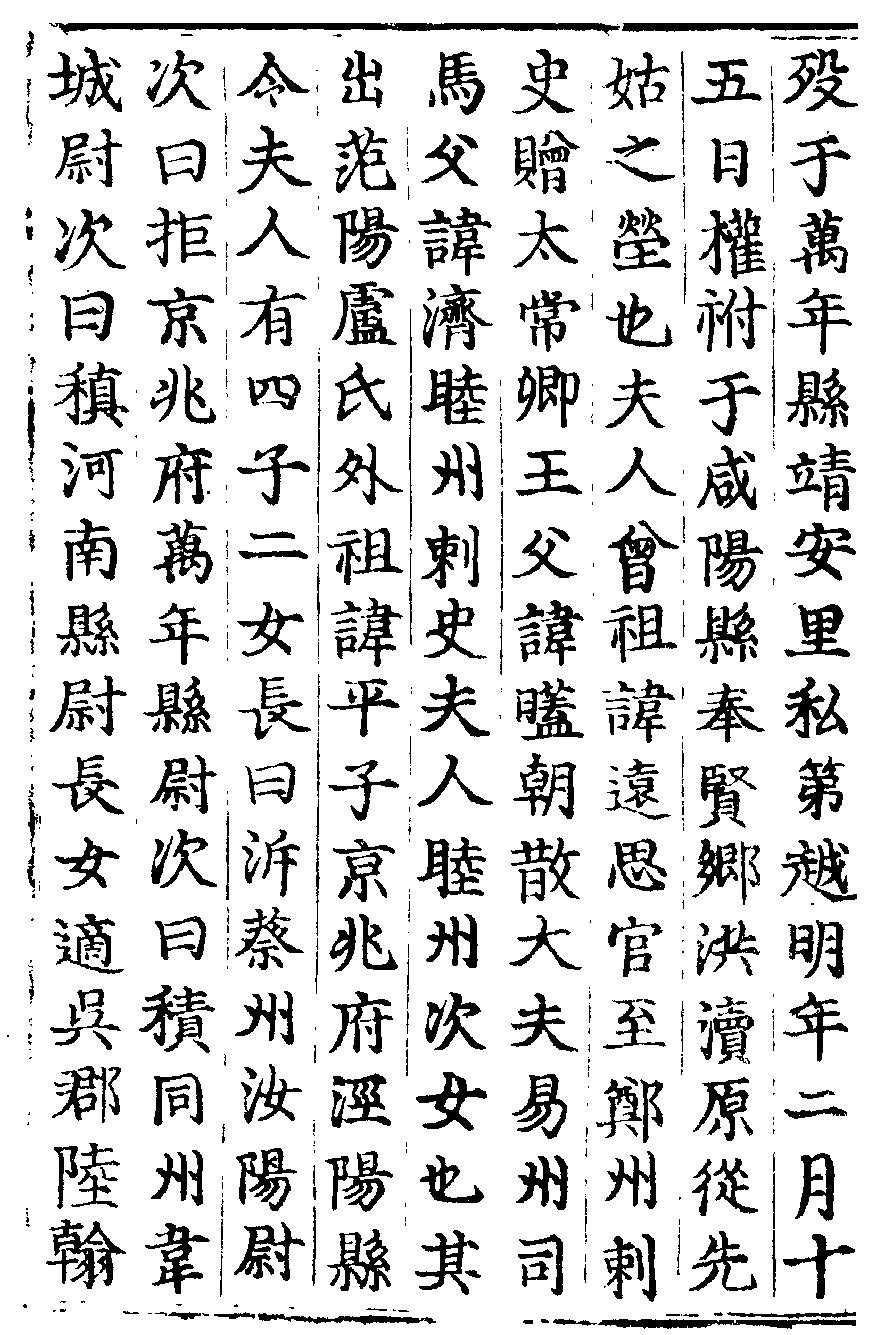 歿于萬年縣靖安里私第越明年二月十
五日權祔于咸陽縣奉賢鄉洪瀆原從先
姑之塋也夫人曾祖諱遠思官至鄭州刺
史贈太常卿王父諱㬜朝散大夫易州司
馬父諱濟睦州刺史夫人睦州次女也其
出范陽盧氏外祖諱平子京兆府涇陽縣
令夫人有四子二女長曰泝蔡州汝陽尉
次曰拒京兆府萬年縣尉次曰積同州韋
城尉次曰稹河南縣尉長女適吳郡陸翰